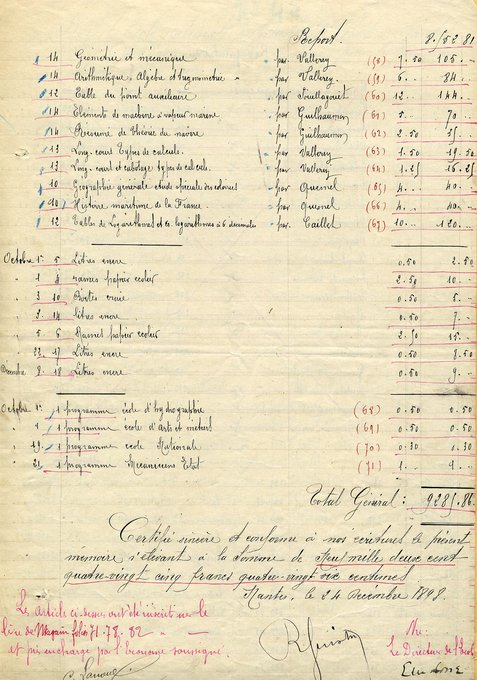 Report. 8.552.81
14 Géométrie et mécanique par Vallerey (58) 7.50 105. -
14 Arithmétique, Algèbre et trigonométrie par Vallerey (59) 6. 84. -
12 Table du point auxiliaire par (60) 12. 144. -
14 Eléments de machine à vapeur marine par Guilhaumon (61) 5. 70
14 Résumé de théories du navire par Guilhaumon (62) 2.50 35. -
13 Long-court Types de calculs par Vallerey (63) 1.50 19.50
13 Long-court et cabotage types de calculs par Vallerey (64) 1.25 16.25
10 Géographie générale étude spéciale des colonies par Quesnel (65) 4. 40. -
10 Histoire maritime de la France par Quesnel (66) 4. 40. -
12 Tables de Logarithmes et Co. logarithmes à 6 décimales par Caillet (67) 10. 120. -
Octobre 1er 5 Litres encre 0.50 2.50
" 1 4 rames papier écolier 2.50 10. -
" 3 10 Boîtes craie 0.50 5. -
" 3 14 litres encre 0.50 7. -
" 5 6 Rames papier écolier 2.50 15. -
" 22 17 Litres encre 0.50 8.50
Décembre 8 18 Litres encre 0.50 9. -
Octobre 1er 1 programme école d'hydrographie (68) 0.50 0.50
" 1 1 programme école d'Arts et métiers (69) 0.50 0.50
" 19 1 programme école Nationale (70) 0.30 0.30
" 21 1 programme Mécaniciens Etat (71) 1.
Total Général : 9285.86
Certifié sincère et conforme à nos écritures le présent
mémoire s'élevant à la somme de Neuf mille deux cent
quatre-vingt cinq francs quatre-vingt six centimes
Nantes, le 24 Décembre 1898.
Les article ci-dessus ont été inscrit sur le
livre de Magasin folios 71 78. 82
et pris en charge par l'économe soussigné.
Vu:
Le Directeur de l'Ecole